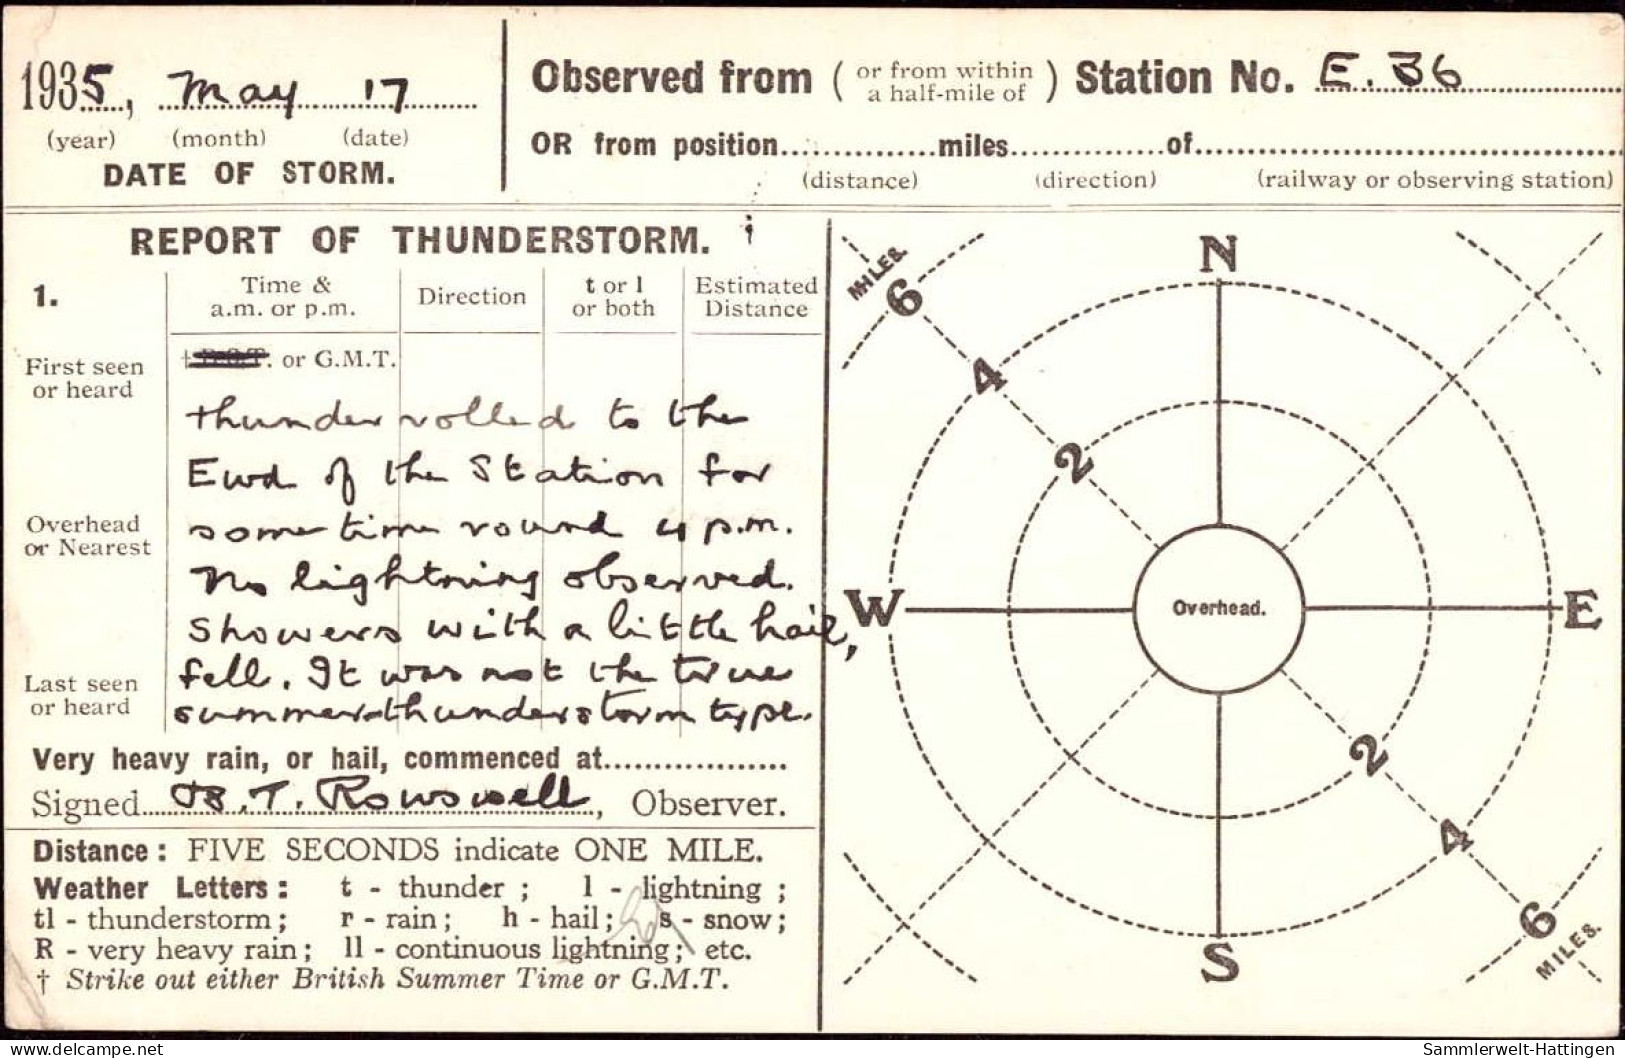 1935, May 17
(year) (month) (date)
DATE OF STORM.
Observed from ( or from within a half-mile of ) Station No. E. 36
OR from position..............miles..............of..............
(distance) (direction) (railway or observing station)
REPORT OF THUNDERSTORM.
1.
Time & a.m. or p.m.
Direction
t or l or both
Estimated Distance
First seen or heard
† B.S.T. or G.M.T.
Thunder rolled to the
Ewd of the Station for
some time round 4 p.m.
No lightning observed.
Showers with a little hail,
fell. It was not the true
summer-thunderstorm type.
Overhead or Nearest
Last seen or heard
Very heavy rain, or hail, commenced at..................
Signed B.T. Rowswell, Observer.
Distance : FIVE SECONDS indicate ONE MILE.
Weather Letters : t - thunder ; l - lightning ;
tl - thunderstorm ; r - rain ; h - hail ; s - snow ;
R - very heavy rain ; ll - continuous lightning ; etc.
† Strike out either British Summer Time or G.M.T.
N
MILES.
6
4
2
W
Overhead.
E
2
4
6
MILES.
S
www.delcampe.net
Sammlerwelt-Hattingen